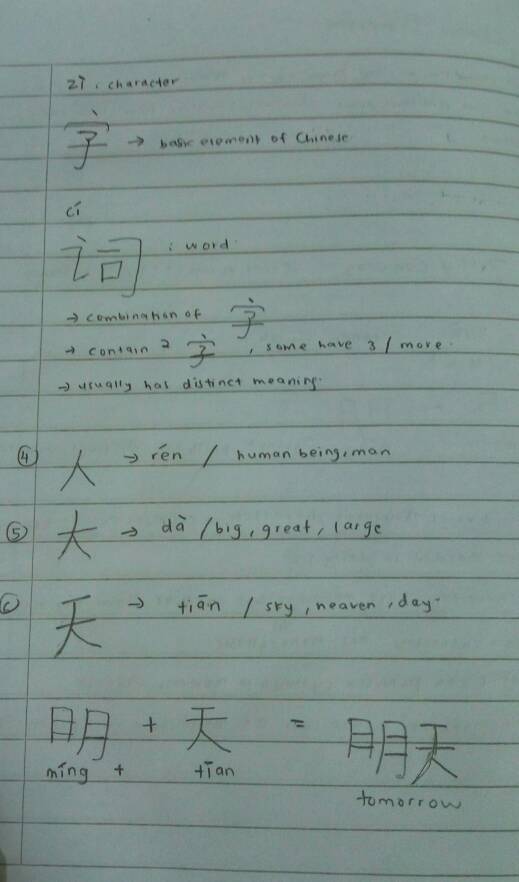 zì : character
字 → basic element of Chinese
cí
词 : word
→ combination of 字
→ contain 2 字, some have 3 / more.
→ usually has distinct meaning.
④ 人 → rén / human being, man
⑤ 大 → dà / big, great, large
⑥ 天 → tiān / sky, heaven, day
明 + 天 = 明天
míng + tīan
tomorrow